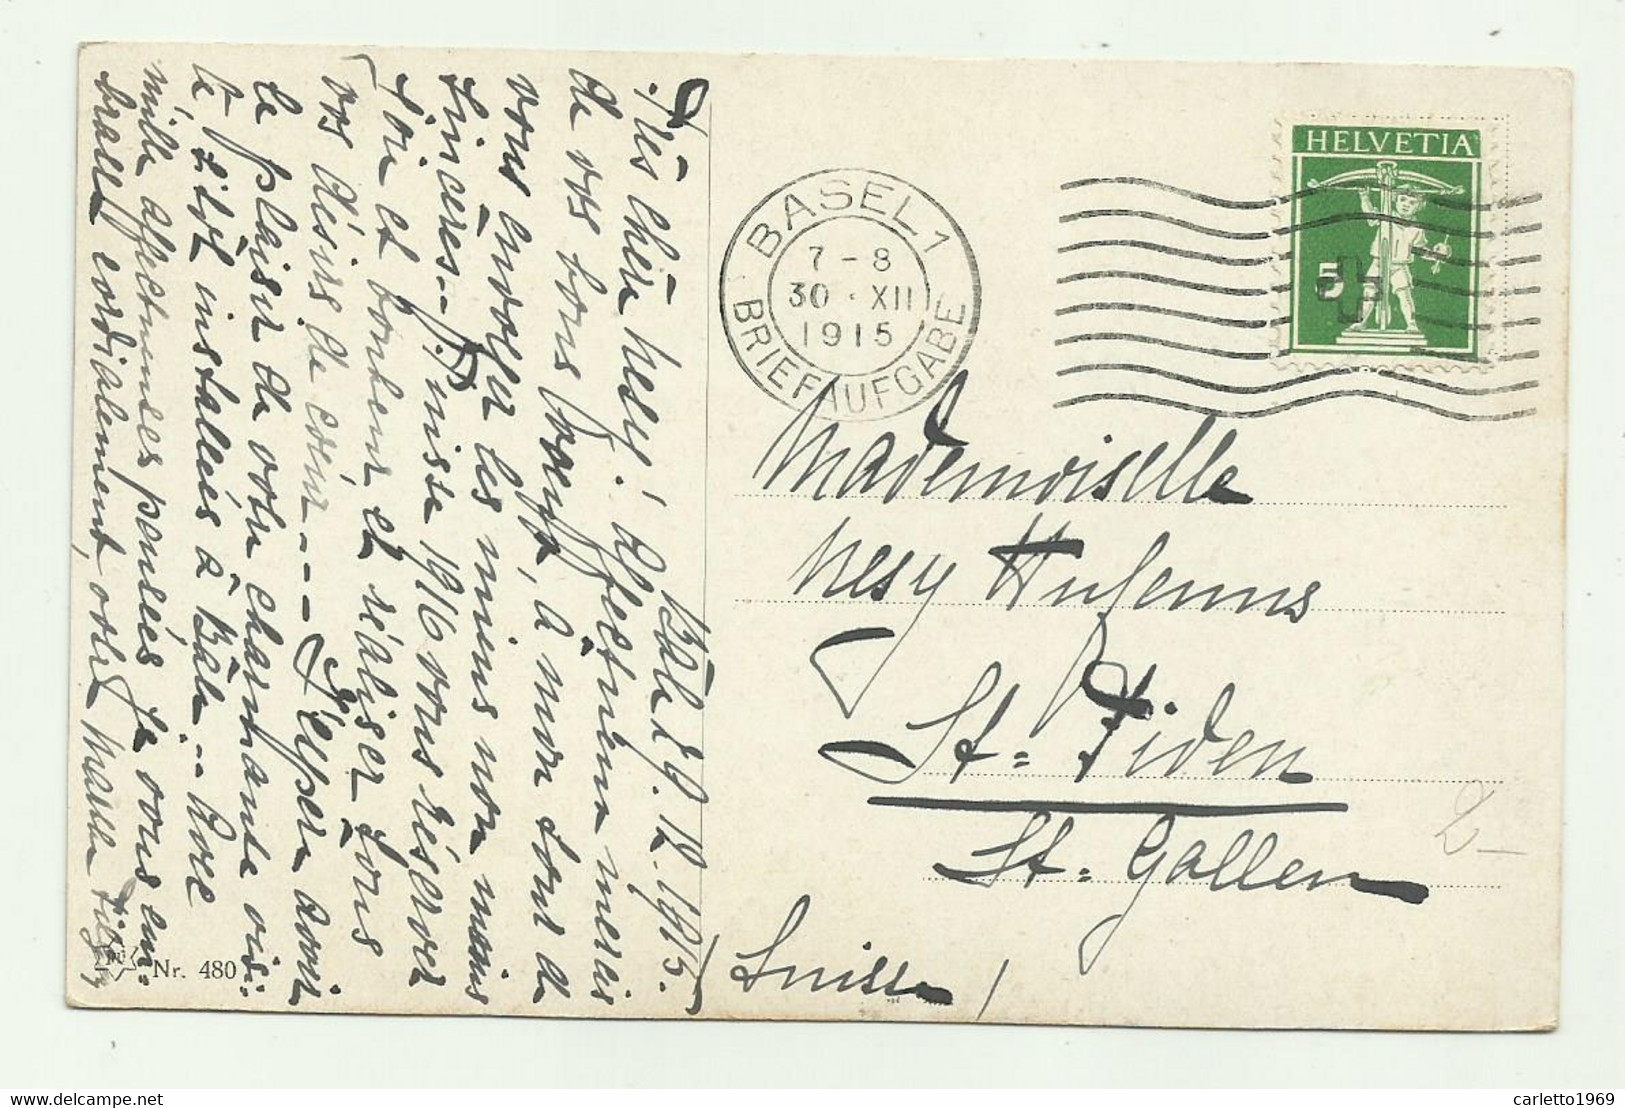 Bâle 29.12.1915.
Très chère Nesy! Affectueux mercis
de vos bons voeux, à mon tour de
vous envoyer les miens non moins
sincères... Puisse 1916 vous réserver
Joie et bonheur et réaliser tous
vos désirs de coeur---- J'espère avoir
le plaisir de votre charmante visi-
te sitôt installés à Bâle... Avec
mille affectueuses pensées je vous em-
brasse cordialement, votre
Nr. 480
BASEL 1
7-8
30·XII
1915
BRIEFAUFGABE
HELVETIA
5
Mademoiselle
Nesy
St. Fiden
St. Gallen
Suisse
2-
carletto1969